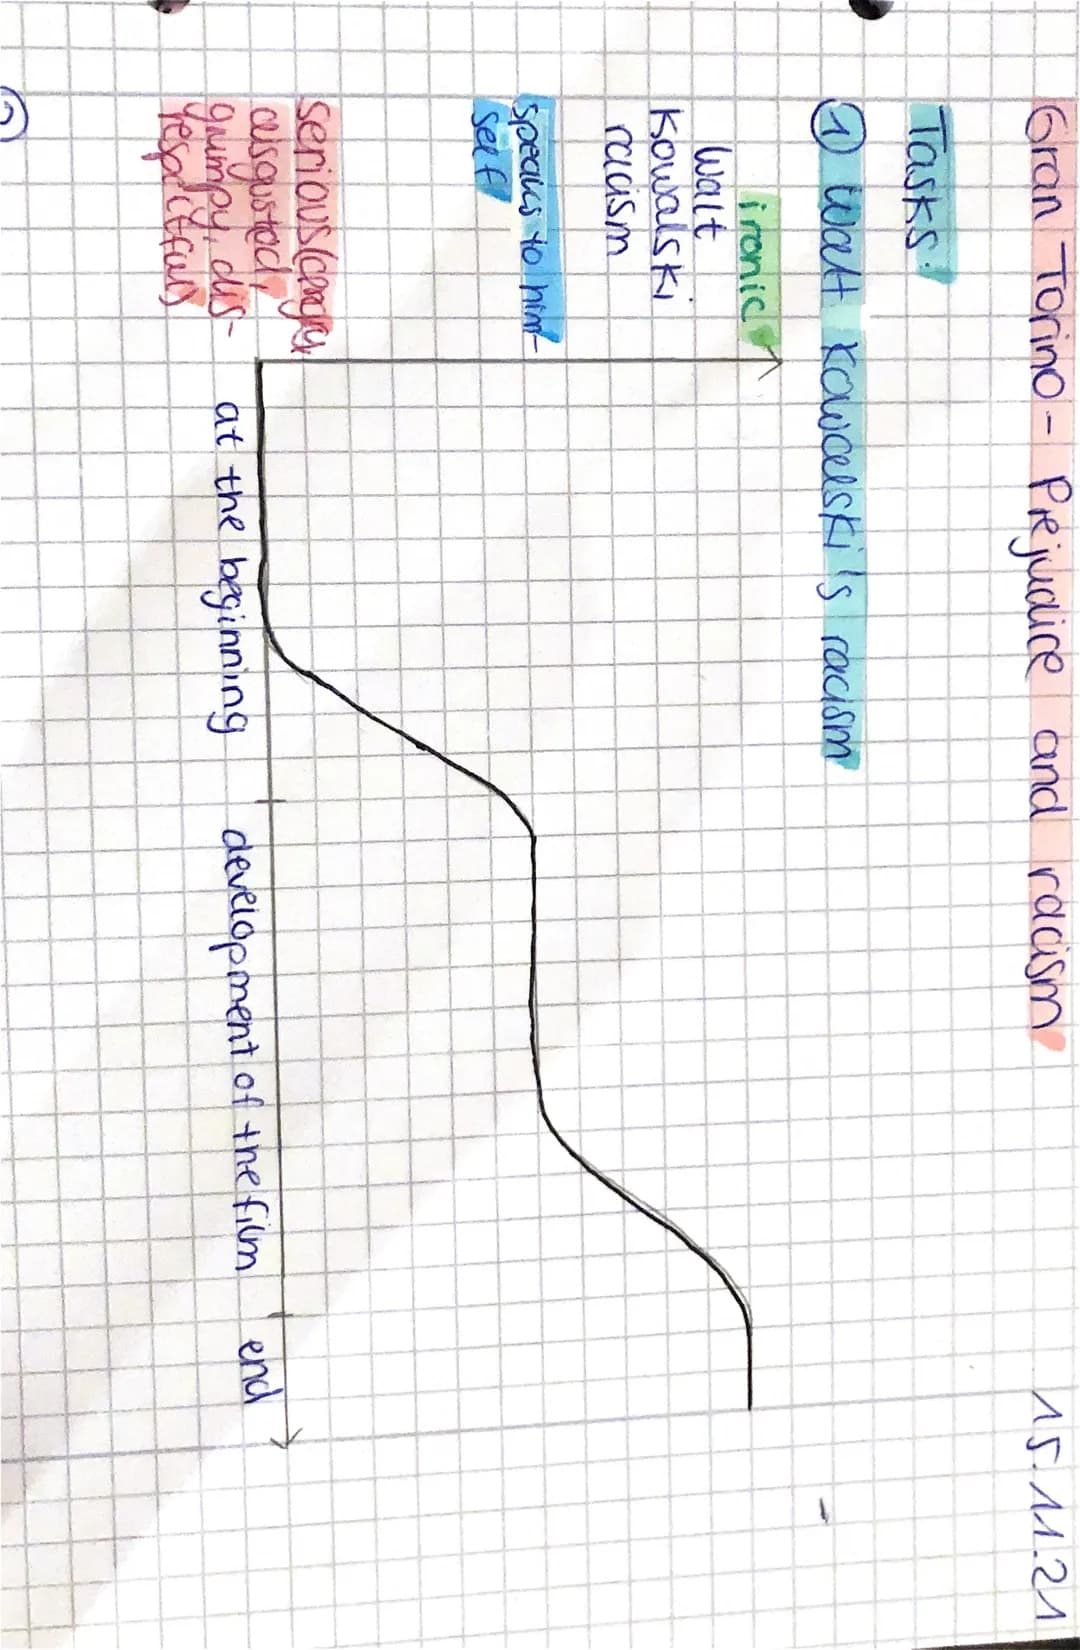 Gran Torino - Prejudice and racism 15.11.21
Tasks:
1) Walt Kowalski's racism
ironic
Walt
Kowalski
racism
speaks to him-
self
serious (angry,
disgusted,
grumpy, dis-
respectful)
at the beginning development of the film end